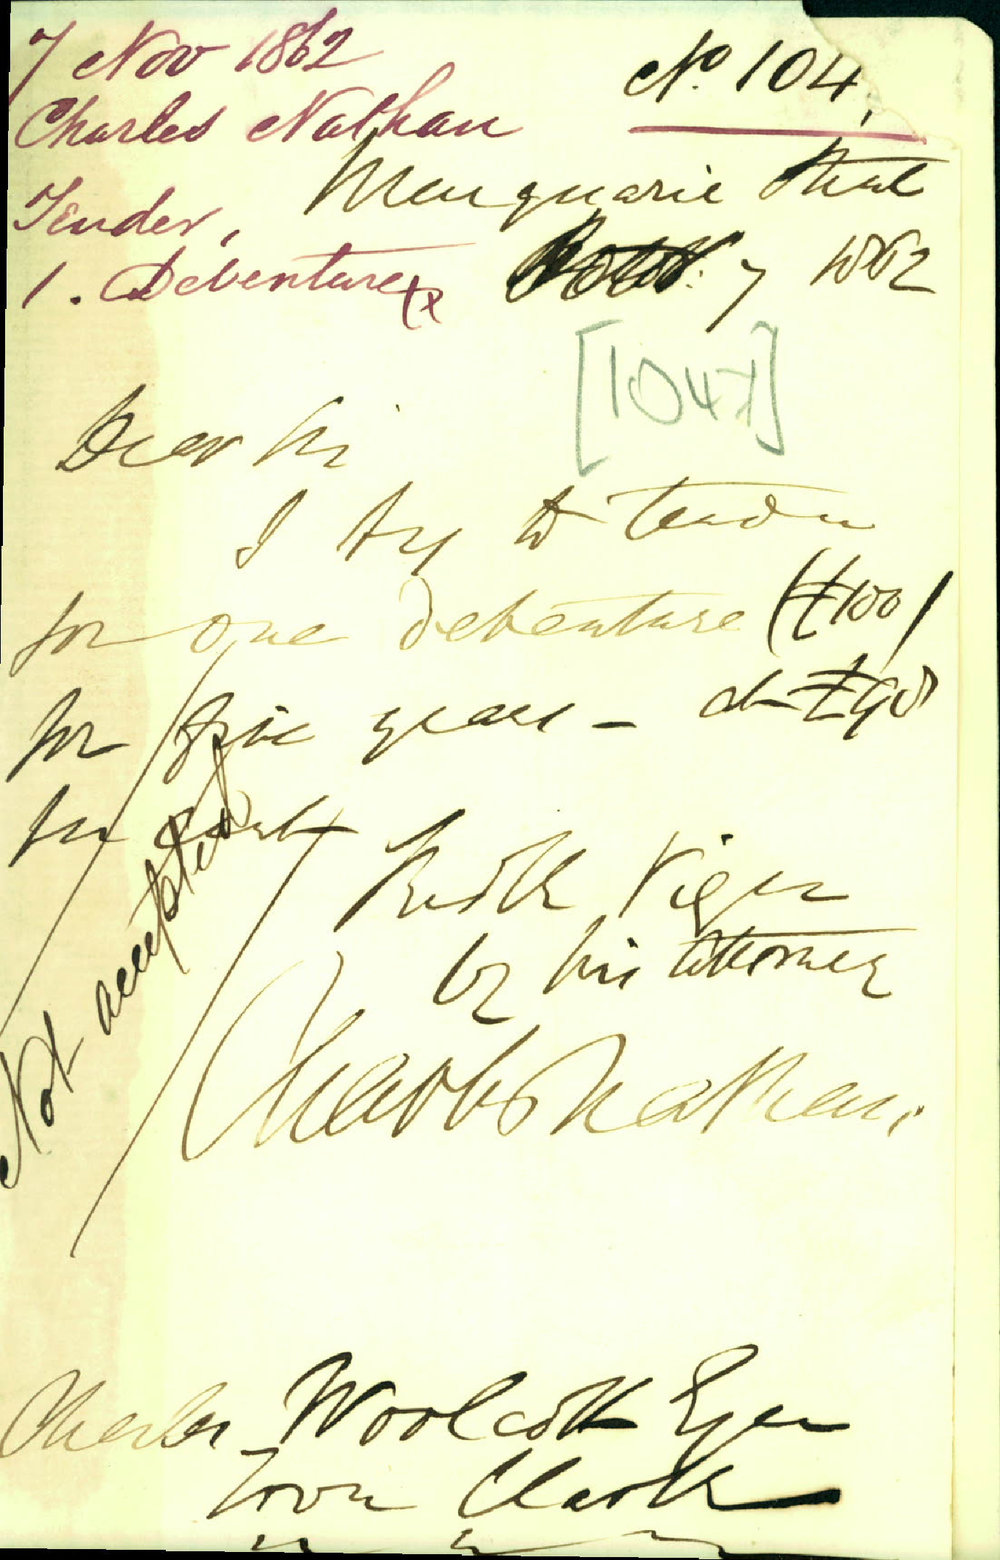 7 Nov 1862
Charles Nathan
Tender,
1. Debenture
No. 104
Macquarie Street
7 1862
[1047]
Dear Sir
I beg to tender
for one debenture (£100)
for five years - at £98
per Cent
by his Attorney
Charles Nathan.
Not accepted
Charles Woolcott Esqre
Town Clerk